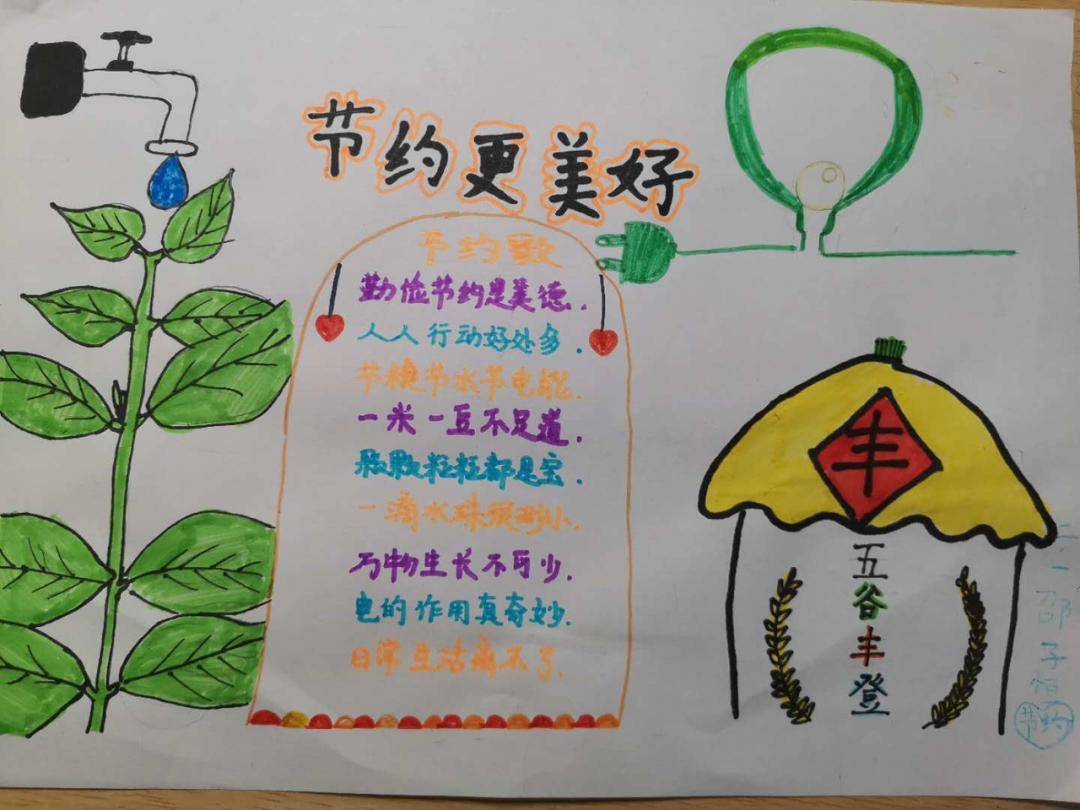 节约更美好
节约歌
勤俭节约是美德.
人人行动好处多.
节粮节水节电能.
一米一豆不足道.
颗颗粒粒都是宝.
一滴水珠很渺小.
万物生长不可少.
电的作用真奇妙.
日常生活离不了.
丰
五谷丰登
二·一邵子恒
节约